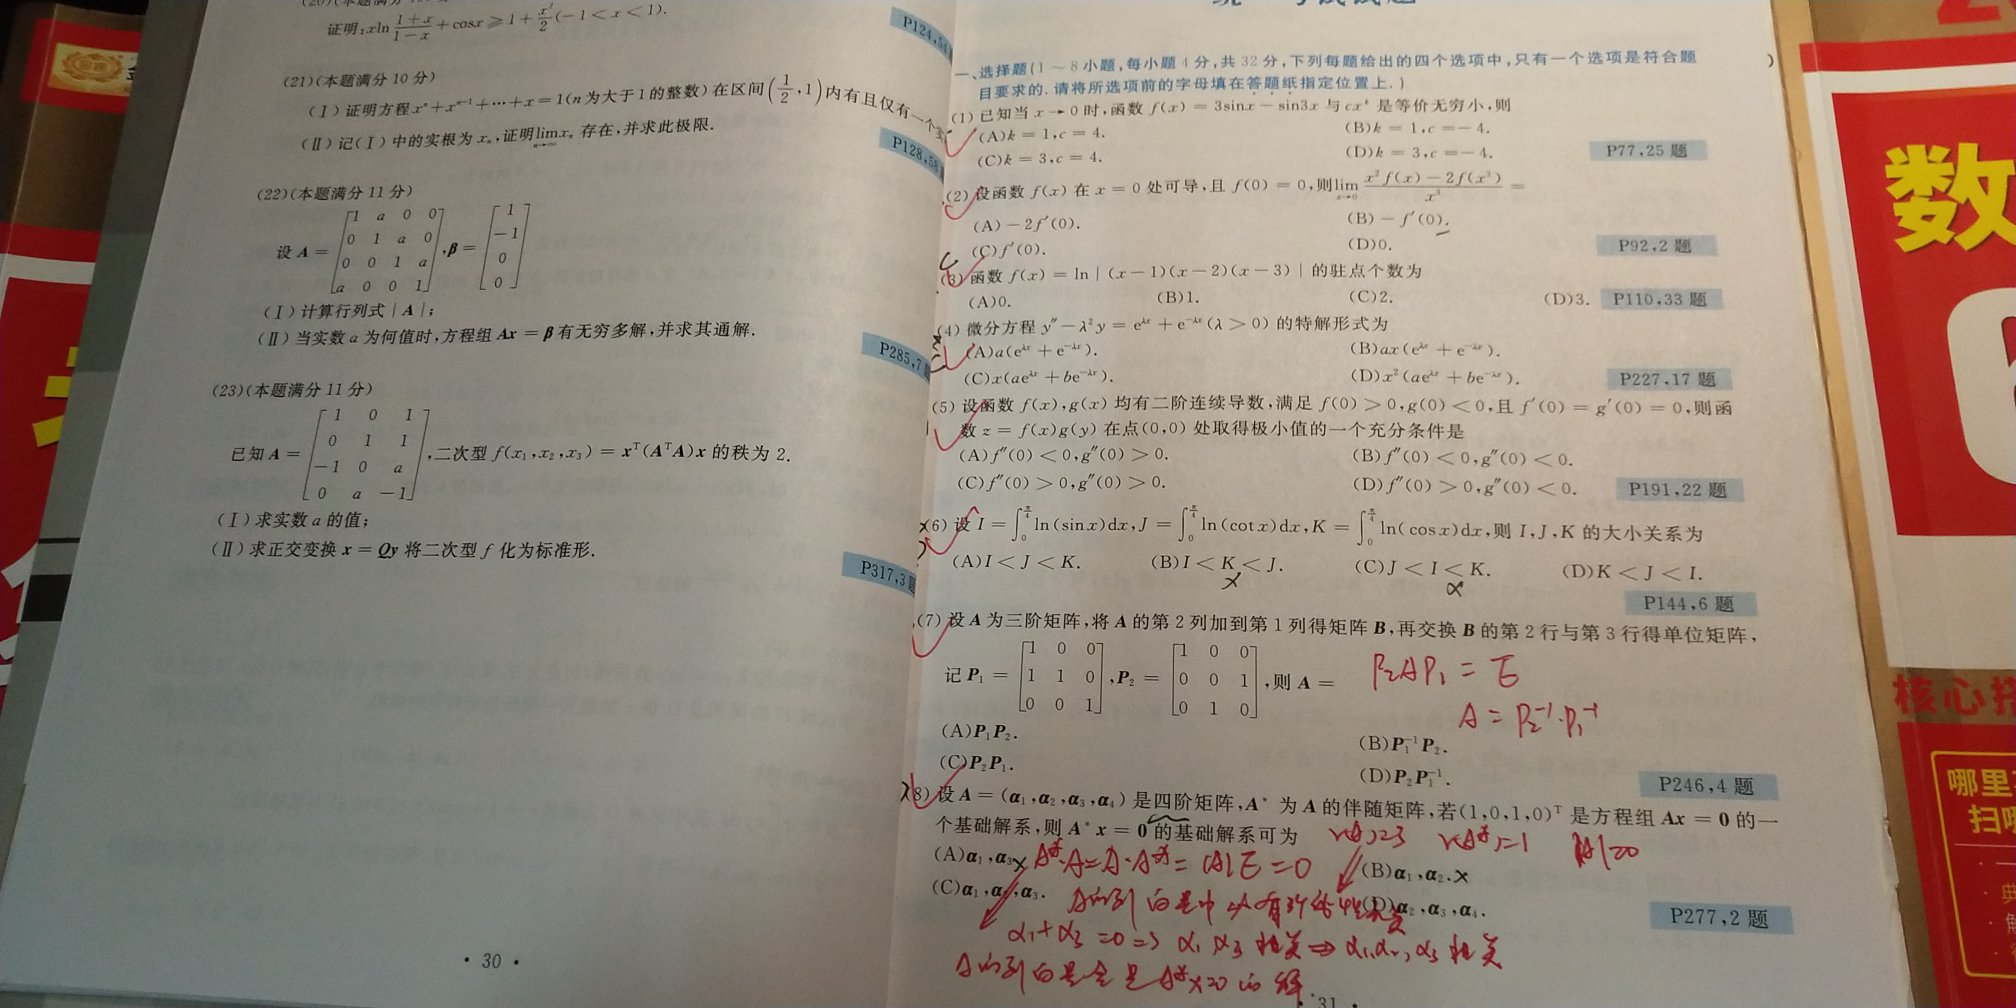 证明:xln (1+x)/(1-x) + cosx ⩾ 1 + x²/2 (-1 < x < 1).
P124,54
(21)(本题满分 10 分)
(Ⅰ)证明方程 xⁿ+xⁿ⁻¹+⋯+x=1(n 为大于 1 的整数)在区间(1/2,1)内有且仅有一个实
(Ⅱ)记(Ⅰ)中的实根为 xₙ,证明 lim n→∞ xₙ 存在,并求此极限.
P128,58
(22)(本题满分 11 分)
设 A = [1 a 0 0; 0 1 a 0; 0 0 1 a; a 0 0 1], β = [1; -1; 0; 0]
(Ⅰ)计算行列式 | A |;
(Ⅱ)当实数 a 为何值时,方程组 Ax = β 有无穷多解,并求其通解.
P285,7
(23)(本题满分 11 分)
已知 A = [1 0 1; 0 1 1; -1 0 a; 0 a -1],二次型 f(x₁,x₂,x₃) = xᵀ(AᵀA)x 的秩为 2.
(Ⅰ)求实数 a 的值;
(Ⅱ)求正交变换 x = Qy 将二次型 f 化为标准形.
P317,3 题
• 30 •
一、选择题(1 ~ 8 小题,每小题 4 分,共 32 分,下列每题给出的四个选项中,只有一个选项是符合题
目要求的.请将所选项前的字母填在答题纸指定位置上.)
(1) 已知当 x → 0 时,函数 f(x) = 3sinx - sin3x 与 cxᵏ 是等价无穷小,则
(A)k = 1,c = 4. (B)k = 1,c = -4.
(C)k = 3,c = 4. (D)k = 3,c = -4. P77,25 题
(2) 设函数 f(x) 在 x = 0 处可导,且 f(0) = 0,则 lim x→0 (x²f(x) - 2f(x³))/x³ =
(A) -2f′(0). (B) -f′(0).
(C) f′(0). (D)0. P92,2 题
(3) 函数 f(x) = ln | (x-1)(x-2)(x-3) | 的驻点个数为
(A)0. (B)1. (C)2. (D)3. P110,33 题
(4) 微分方程 y″ - λ²y = e^λx + e^-λx (λ > 0) 的特解形式为
(A)a(e^λx + e^-λx). (B)ax(e^λx + e^-λx).
(C)x(ae^λx + be^-λx). (D)x²(ae^λx + be^-λx). P227,17 题
(5) 设函数 f(x),g(x) 均有二阶连续导数,满足 f(0) > 0,g(0) < 0,且 f′(0) = g′(0) = 0,则函
数 z = f(x)g(y) 在点(0,0) 处取得极小值的一个充分条件是
(A)f″(0) < 0,g″(0) > 0. (B)f″(0) < 0,g″(0) < 0.
(C)f″(0) > 0,g″(0) > 0. (D)f″(0) > 0,g″(0) < 0. P191,22 题
(6) 设 I = ∫₀^(π/4) ln(sinx)dx,J = ∫₀^(π/4) ln(cotx)dx,K = ∫₀^(π/4) ln(cosx)dx,则 I,J,K 的大小关系为
(A)I < J < K. (B)I < K < J. (C)J < I < K. (D)K < J < I.
P144,6 题
(7) 设 A 为三阶矩阵,将 A 的第 2 列加到第 1 列得矩阵 B,再交换 B 的第 2 行与第 3 行得单位矩阵,
记 P₁ = [1 0 0; 1 1 0; 0 0 1],P₂ = [1 0 0; 0 0 1; 0 1 0],则 A =
P₂AP₁ = E
A = P₂⁻¹·P₁⁻¹
(A)P₁P₂. (B)P₁⁻¹P₂.
(C)P₂P₁. (D)P₂P₁⁻¹. P246,4 题
(8) 设 A = (α₁,α₂,α₃,α₄) 是四阶矩阵,A* 为 A 的伴随矩阵,若(1,0,1,0)ᵀ 是方程组 Ax = 0 的一
个基础解系,则 A*x = 0 的基础解系可为 r(A)=3 r(A*)=1 |A|=0
(A)α₁,α₃. A*·A=A·A*=|A|E=0 (B)α₁,α₂.
(C)α₁,α₂,α₃. (D)α₂,α₃,α₄. P277,2 题
α₁+α₃=0⇒ α₁,α₃ 相关⇒α₁,α₂,α₃ 相关
A的列向量全是A*x=0的解
• 31 •
数
6
核心
哪里
扫